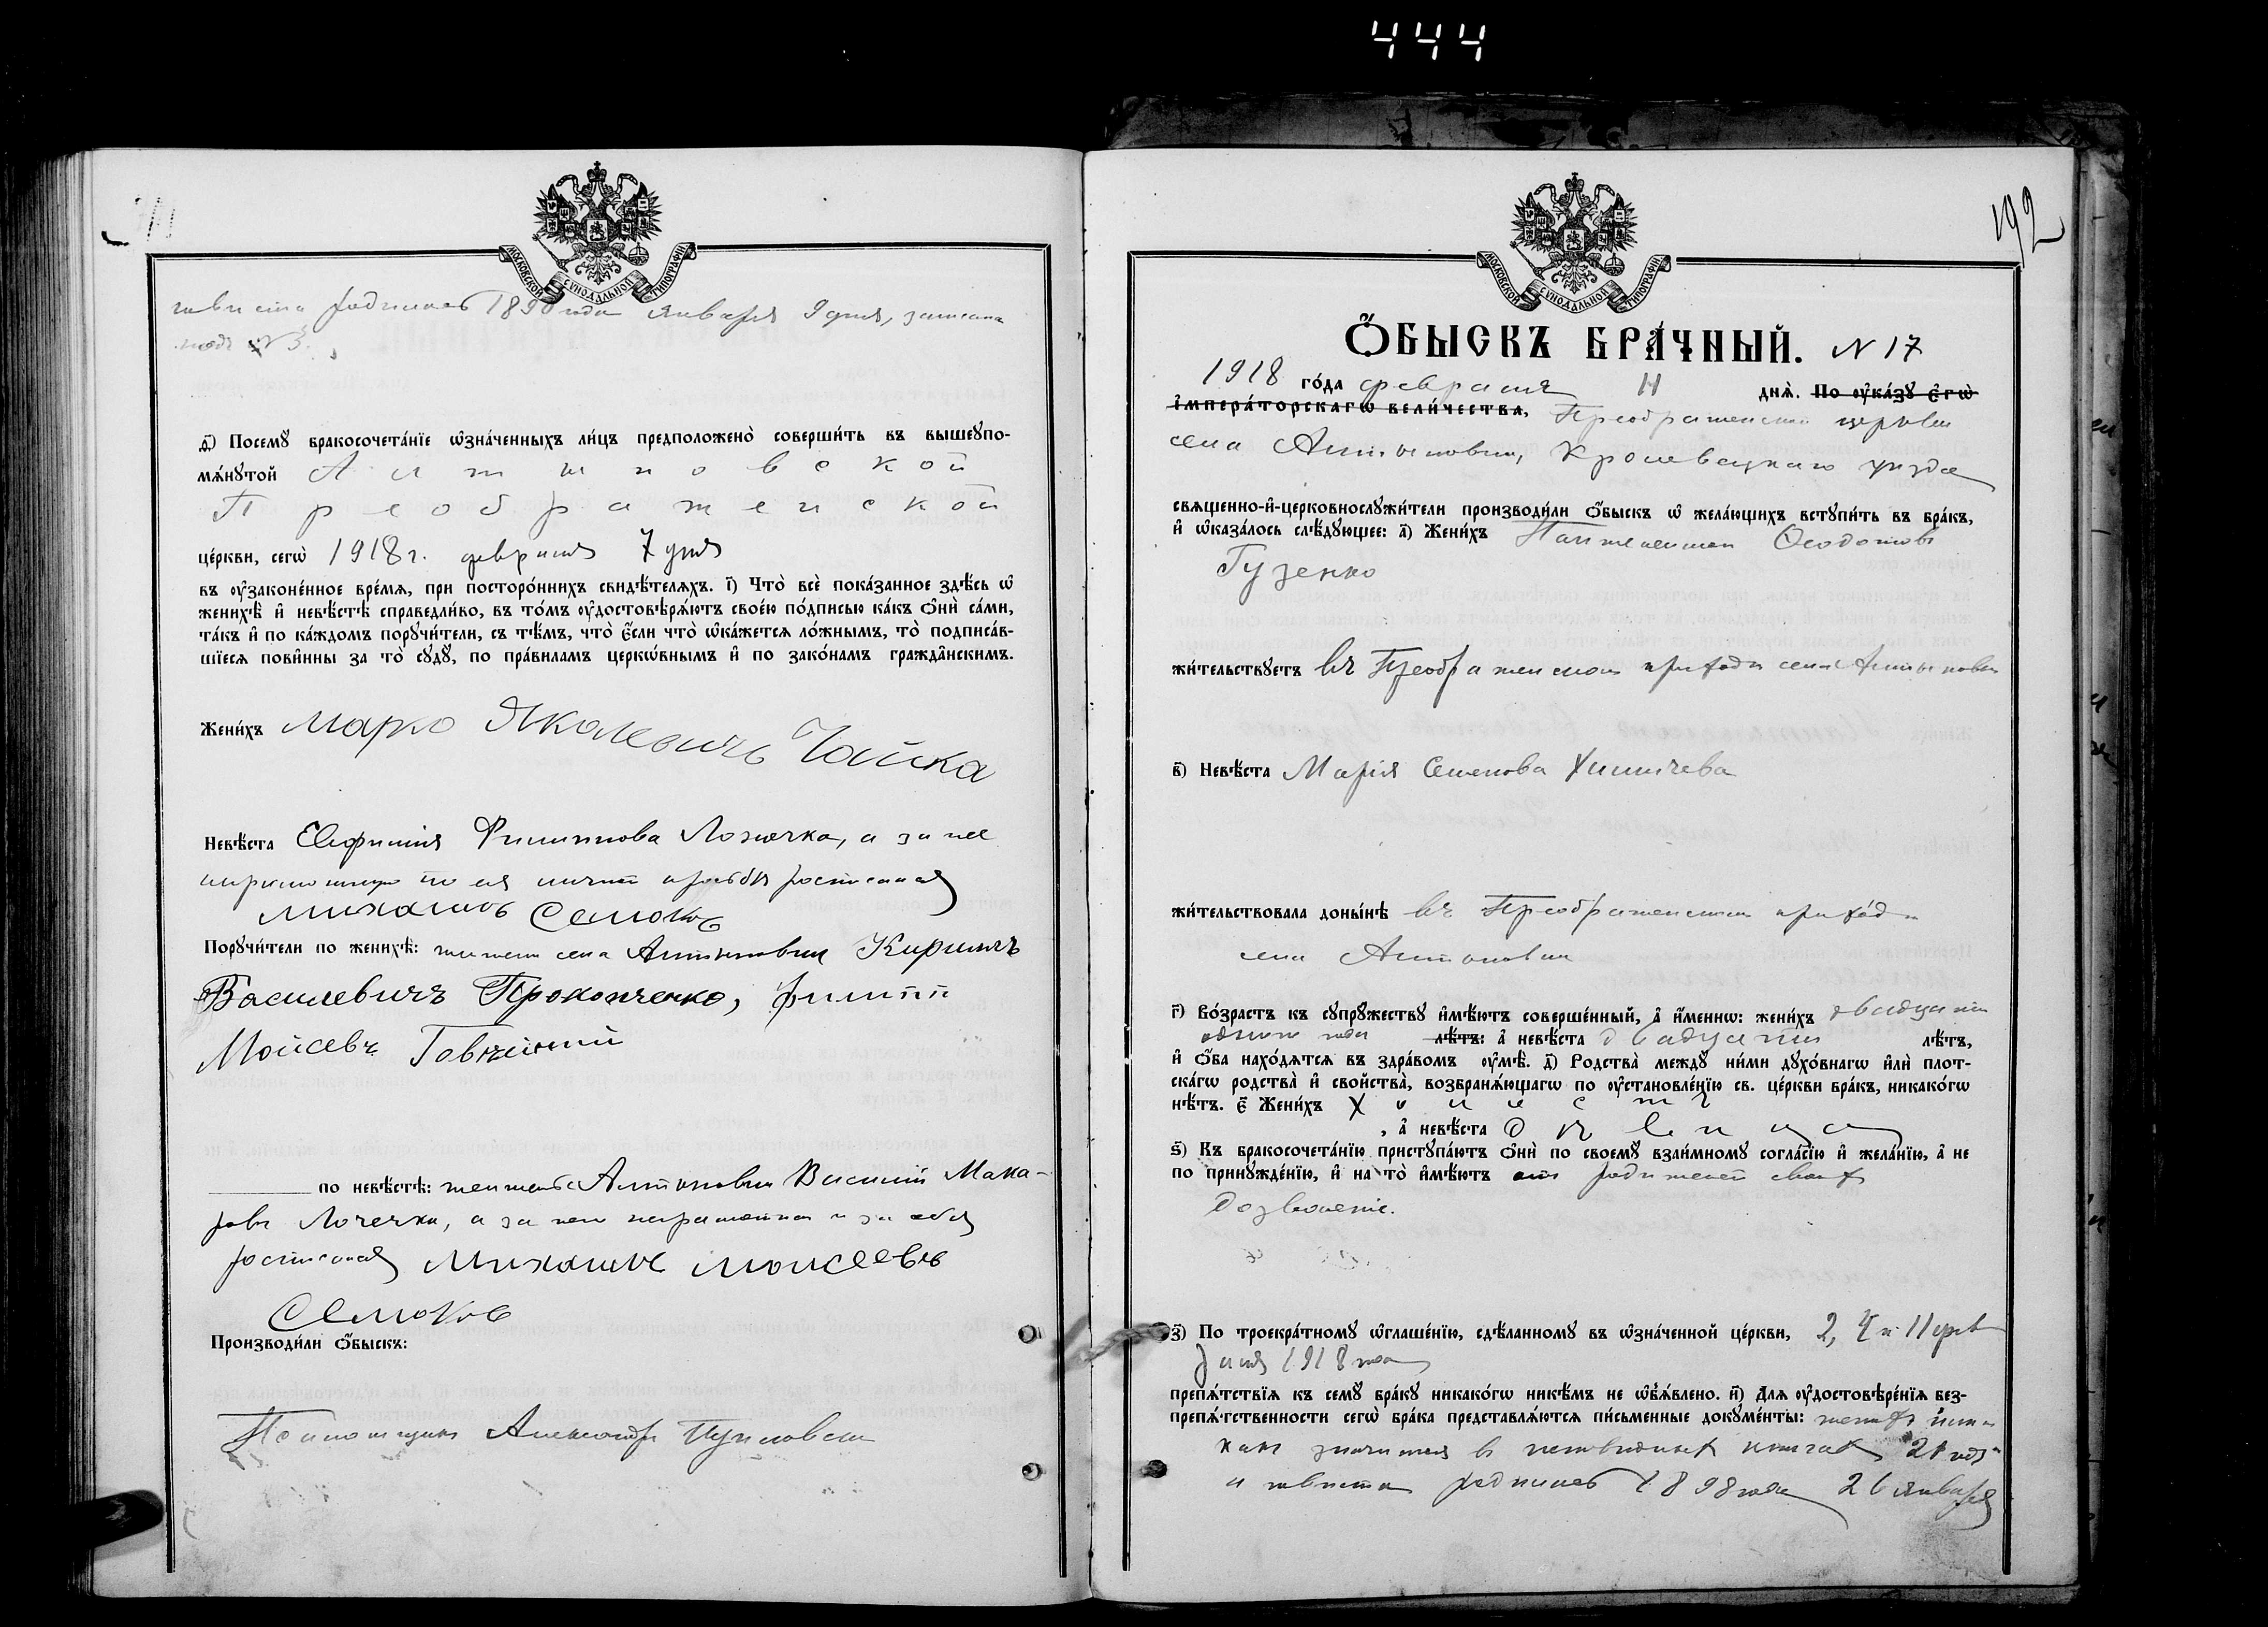 444
МОСКОВСКОЙ СУНОДАЛЬНОЙ ТИПОГРАФІИ
невѣста родилась 1890 года января 9 дня, записана
подъ № 3.
ѳ҃) Посемꙋ бракосочета́нїе ѡ҆зна́ченныхъ ли́цъ предположено̀ соверши́ть въ вышеꙋпо-
мѧ́нꙋтой Антыновской
Преображенской
це́ркви, сегѡ̀ 1918 г. февраля 7 дня
въ ᲂу҆законе́нное вре́мѧ, при посторо́ннихъ свидѣ́телѧхъ. і҃) Что̀ всѐ пока́занное здѣ́сь ѡ҆
женихѣ̀ и҆ невѣ́стѣ справедли́во, въ то́мъ ᲂу҆достовѣрѧ́ютъ свое́ю по́дписью ка́къ ѻ҆нѝ са́ми,
та́къ и҆ по ка́ждомъ порꙋчи́тели, съ тѣ́мъ, что̀ є҆́сли что̀ ѡ҆ка́жетсѧ ло́жнымъ, то̀ подписа́в-
шїесѧ пови́нны за то̀ сꙋдꙋ̀, по пра́виламъ церкѡ́внымъ и҆ по зако́намъ гражда̑нскимъ.
Жени́хъ Марко Яковлевичъ Чайка
Невѣ́ста Евфимія Филиппова Лочечка, а за нее
неграмотную по ея личной просьбѣ росписался
Михаилъ Семоковъ
Порꙋчи́тели по женихѣ̀: житель села Антыновки Кириллъ
Василевичъ Прокопченко, Филиппъ
Моисеевъ
по невѣ́стѣ: житель с. Антоновки Василій Мака-
ровъ Лочечка, а за него неграмотнаго и за себя
росписался Михаилъ Моисеевъ
Семоковъ
Производи́ли ѻ҆́быскъ:
Александръ
МОСКОВСКОЙ СУНОДАЛЬНОЙ ТИПОГРАФІИ
192
Ѻ҆́БЫСКЪ БРА́ЧНЫЙ. № 17
1918 го́да февраля 11 днѧ̀. По ᲂу҆ка́зꙋ є҆гѡ̀
і҆мпера́торскагѡ вели́чества, Преображенской церкви
села Антыновки, Кролевецкаго уезда
свѧщенно-и҆-церковнослꙋжи́тели производи́ли ѻ҆́быскъ ѡ҆ жела́ющихъ встꙋпи́ть въ бра́къ,
и҆ ѡ҆каза́лось слѣ́дꙋющее: а҃) Жени́хъ Пантелеимон Ѳеодотовъ
Гузенко
жи́тельствꙋетъ въ Преображенском приходѣ села Антыновки
в҃) Невѣ́ста Марія Семенова
жи́тельствовала доны́нѣ въ Преображенскомъ приходѣ
села Антоновки
г҃) Во́зрастъ къ сꙋпрꙋжествꙋ и҆мѣ́ютъ соверше́нный, а҆ и҆́менно: жени́хъ двадцати
одного года лѣ́тъ: а҆ невѣ́ста двадцати лѣ́тъ,
и҆ ѻ҆́ба нахо́дѧтсѧ въ здра́вомъ ᲂу҆мѣ̀. д҃) Родства̀ междꙋ̀ ни́ми дꙋхо́внагѡ и҆лѝ плот-
ска́гѡ родства̀ и҆ свойства̀, возбранѧ́ющагѡ по ᲂу҆становле́нїю св. це́ркви бра́къ, никако́гѡ
нѣ́тъ. є҃) Жени́хъ холостъ
, а҆ невѣ́ста дѣвица
ѕ҃) Къ бракосочета́нїю пристꙋпа́ютъ ѻ҆нѝ по своемꙋ̀ взаи́мномꙋ согла́сїю и҆ жела́нїю, а҆ не
по принꙋжде́нїю, и҆ на то̀ и҆мѣ́ютъ от родителей своихъ
дозволеніе.
з҃) По троекра́тномꙋ ѡ҆глаше́нїю, сдѣ́ланномꙋ въ ѡ҆зна́ченной це́ркви, 2, 4 и 11 фев
раля 1918 года
препѧ́тствїѧ къ семꙋ̀ бра́кꙋ никако́гѡ никѣ́мъ не ѡ҆б̾ѧ́влено. и҃) Длѧ ᲂу҆достовѣре́нїѧ без-
препѧ́тственности сегѡ̀ бра́ка представлѧ́ютсѧ пи́сьменные докꙋме́нты: женихъ имѣ
какъ значится в исповѣдныхъ книгахъ 21 годъ
и невѣста родилась 1898 года 26 января